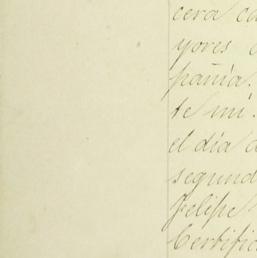 cera ca
yores e
pañia.
te mi.
el día d
segund
Felipe
Certific